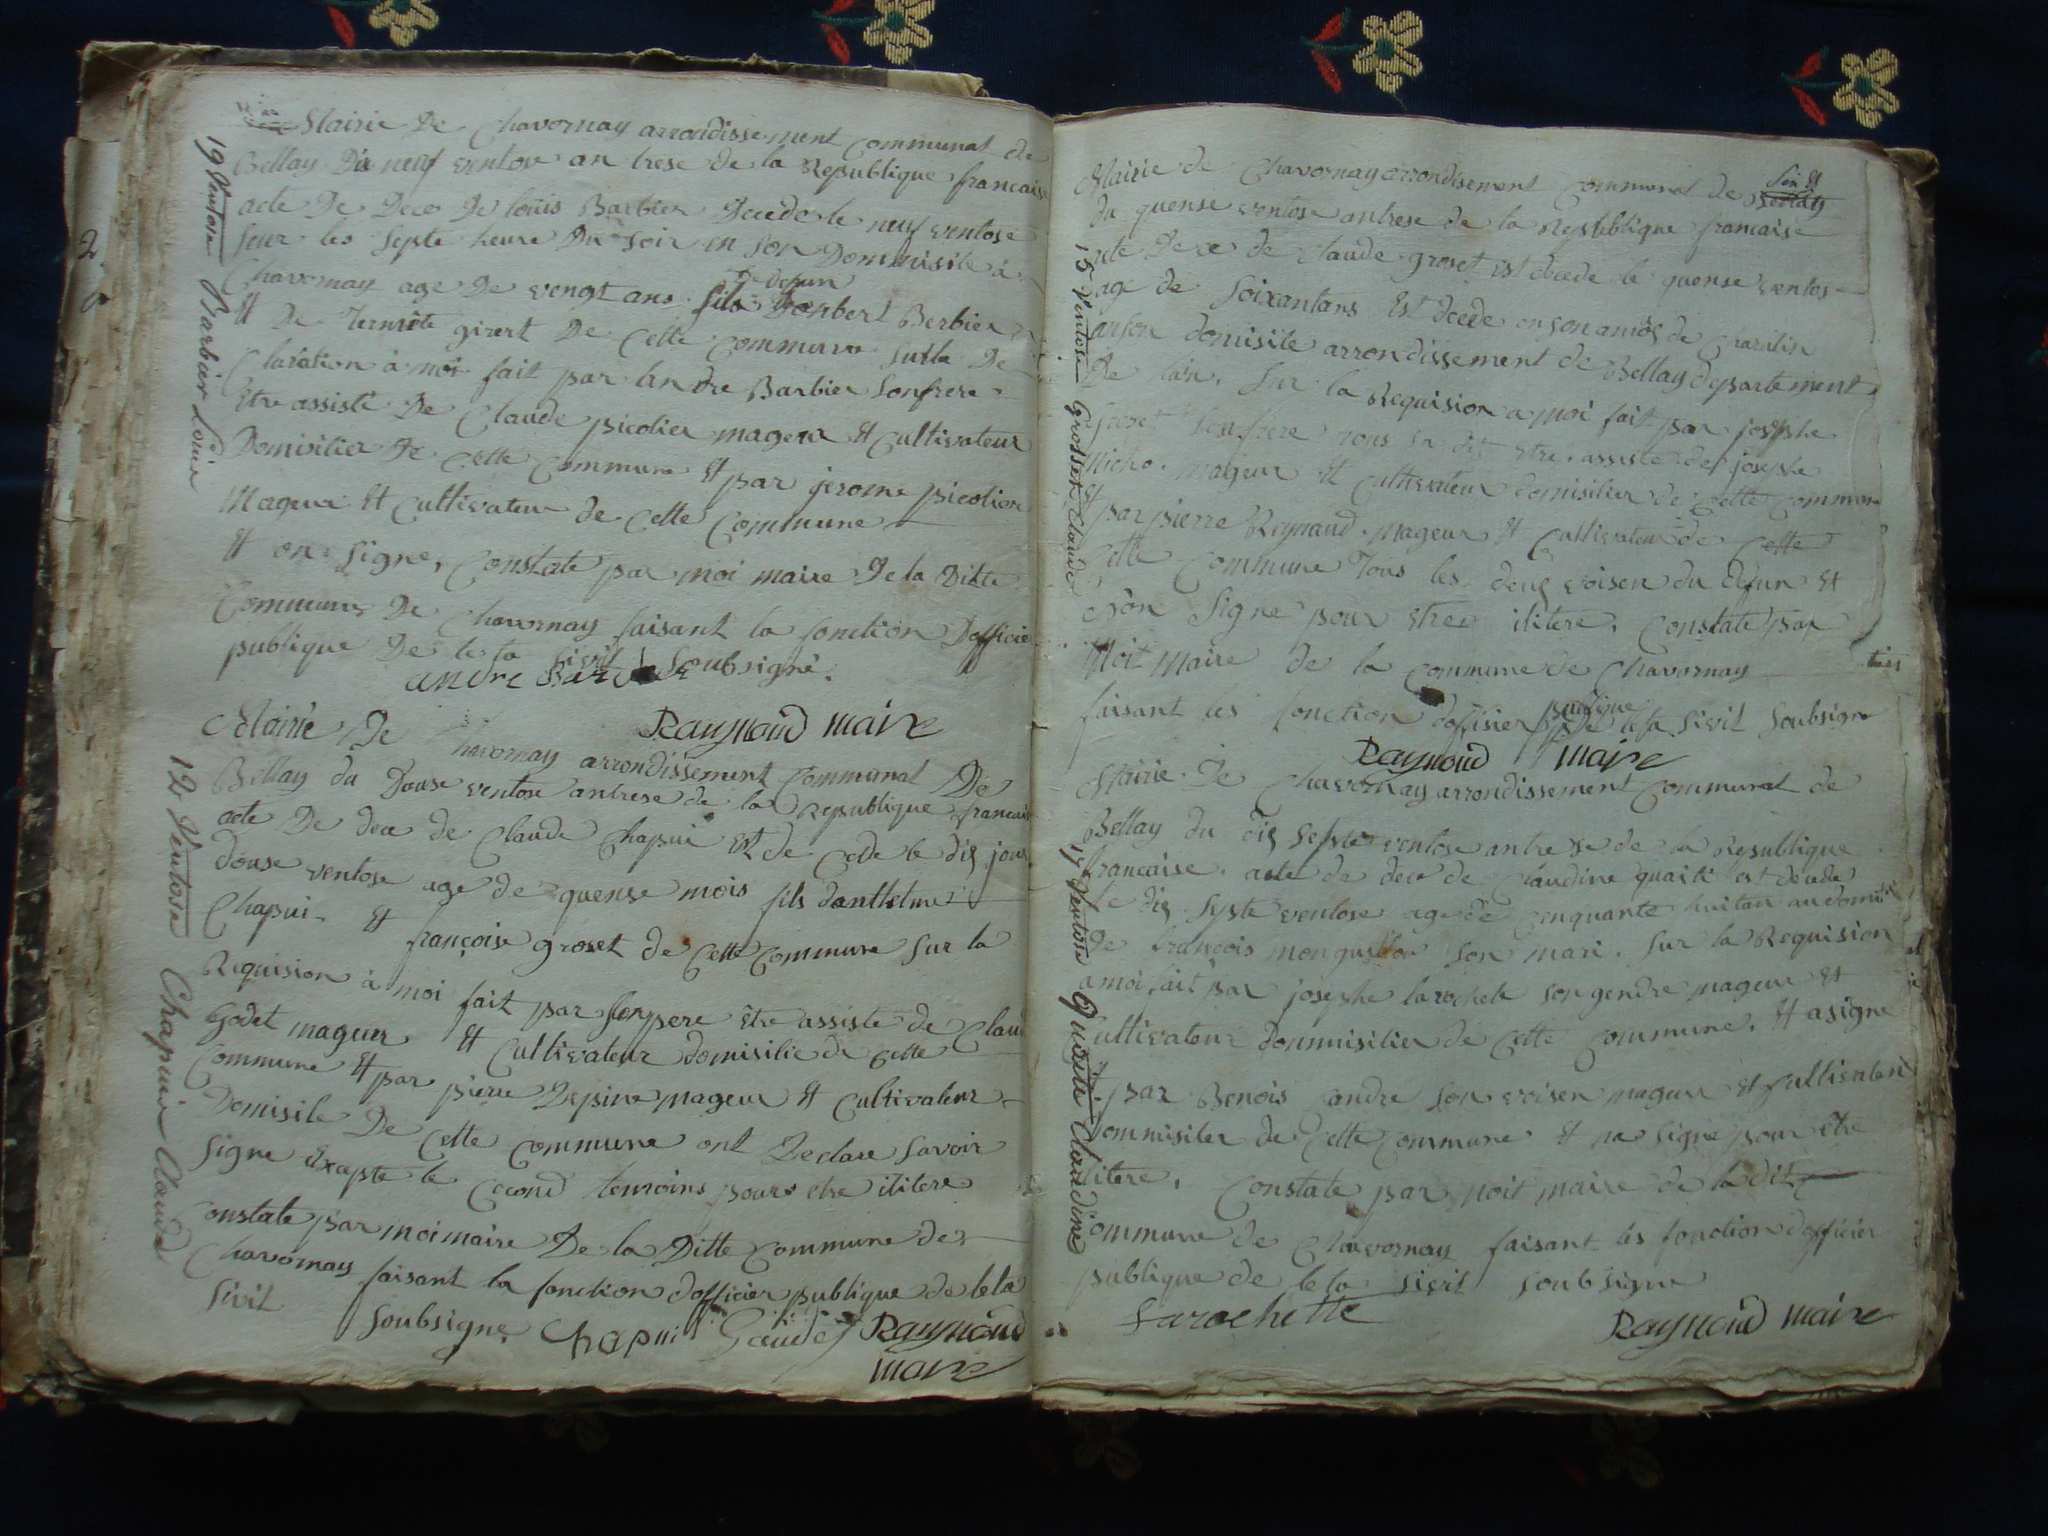 Mairie De Chavornay arrondissement communal de
Bellay Dix neuf ventose an trese de la Republique francaise
acte De Dece De loüis Barbier Decede le neuf ventose
seur les septe heure Du soir en son Dommisile à
Chavornay age De vengt ans fils De defun Barbier
Et De girert De Cette commune sur la De
Claration à moi fait par landre Barbier son frere
Etre assisté De Claude picolier mageur Et cultivateur
Domisilier De Cette commune Et par jerome picolier
Mageur Et cultivateur de Cette Commune
Et on signe, Constate par moi maire De la Ditte
Commune De Chavornay faisant la fonction Dofficie
publique De le ta sivil soubsigné.
andre
Raymond maire
19 Ventose Barbier Loüis
Mairie De Chavornay arrondissement Communal De
Bellay du Douse ventose an trese de la Republique francais
acte De dece de Claude Chapui Est de cede le dis jour
douse ventose age de quense mois fils danthelme
Chapui Et françoise groset de Cette Commune sur la
Requision à moi fait par son pere être assiste de Clau
Godet mageur Et Cultivateur domisilie de Cette
Commune Et par pierre Depine mageur Et Cultivateur
Domisile De Cette Commune ont Declare savoir
signe Exapte le Cecond temoins pour etre ilitere
Constate par moi maire De la Ditte Commune de
Chavornay faisant la fonction dofficier publique de leta
sivil soubsigne Chapui Gaudet Raymond
maire
12 Ventose Chapuis Claude
Mairie de Chavornay arrondisement Communal de Bellay
du quense ventose an trese de la Republique francaise
acte Dece de Claude groset est decede le quense ventos
age de soixantans Est decede en son
an son domisile arrondissement de Bellay departement
De lain. sur la Requision a moi fait par josephe
Groset son frere nous a dit etre assiste de josephe
mageur Et cultivateur domisilier de Cette commune
Et par pierre Reynaud mageur Et Cultivateur de Cette
Cette Commune Tous les deus voisen du defun Et
n'on signe pour etre ilitere, Constate par
Moit Maire de la Commune de Chavornay
faisant les fonction doffisier publique De leta Sivil soubsigne
Raymond maire
15 Ventose Grosset Claude
Mairie De Chavornay arrondissement Communal de
Bellay du dis septe ventose an trese de la Republique
francaise. acte de dece de Claudine quaiti est decede
le dis septe ventose age de cenquante huitan au domi
De François son mari. sur la Requision
a moi fait par josephe larochete son gendre mageur Et
Cultivateur dommisilier de Cette Commune. Et a signe
par Benois andre son voisen mageur Et Cultivateur
Dommisilier de Cette Commune Et na signe pour être
ilitere. Constate par moit maire de la dit
Commune de Chavornay faisant les fonction dofficier
publique de le ta sivil soubsigne
Larochette Raymond maire
17 Ventose Quaiti Claudine